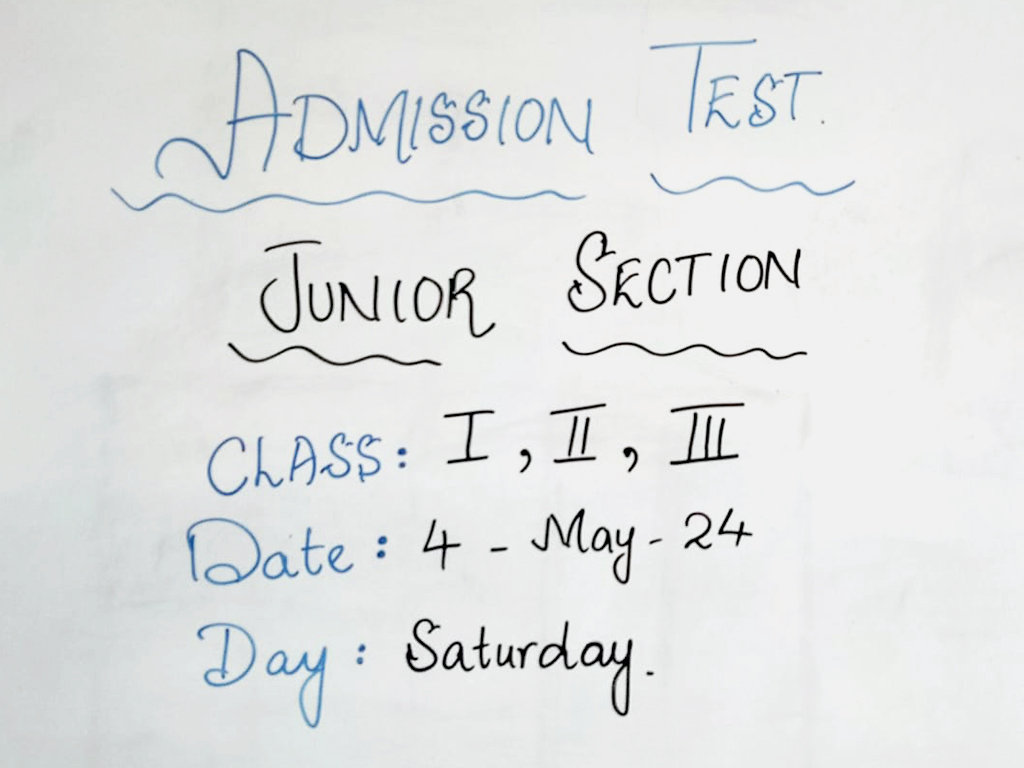 ADMISSION TEST.
JUNIOR SECTION
CLASS: I, II, III
Date: 4 - May - 24
Day: Saturday.